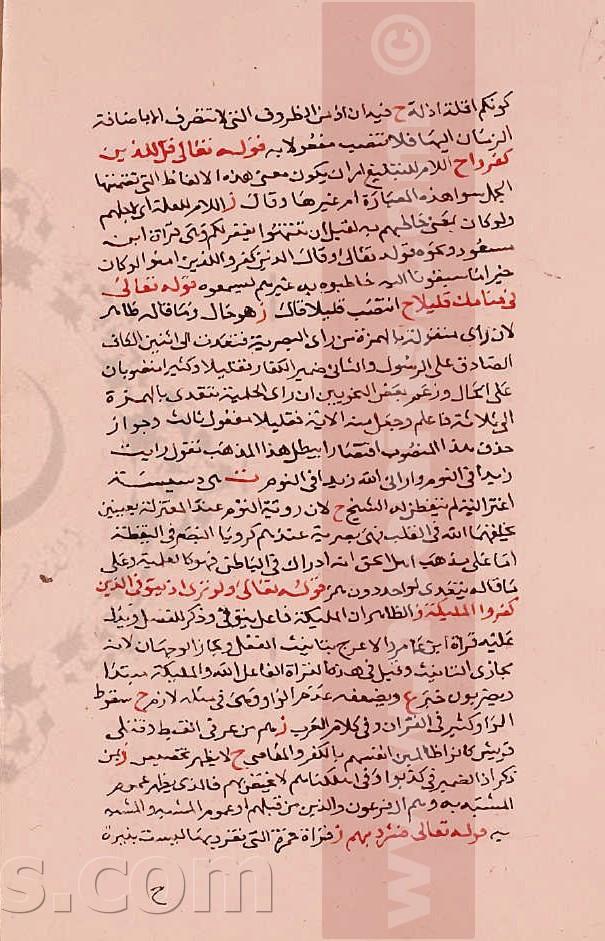 كونكم اقلة اذلة ح فيه ان اذ من الظروف التى لا تتصرف الا باضافة
الزمان اليها فلا تنتصب مفعولا به قوله تعالى قل للذين
كفروا ح اللام للتبليغ امر ان يكون معنى هذه الالفاظ التى تضمنتها
الجمل سوا هذه العبارة ام غيرها وقال ز اللام للعلة اى لاجلهم
ولو كان بمعنى خاطبهم به لقيل ان تنتهوا يغفر لكم وهى قراة ابن
مسعود ونحوه قوله تعالى وقال الذين كفروا للذين امنوا لو كان
خيرا ما سبقونا اليه خاطبوه به غيرهم ليسمعوه قوله تعالى
فى منامك قليلا ح انتصب قليلا قال ز هو حال وما قاله ظاهر
لان راى منقولة بالهمزة من راى البصرية فتعدت الى اثنين الكاف
الصادق على الرسول والثانى ضمير الكفار فقليلا وكثيرا منصوبان
على الحال وزعم بعض النحويين ان راى الحلمية تتعدى بالهمزة
الى ثلاثة فاعلم وجعل منه الاية فقليلا مفعول ثالث وجواز
حذف هذا المنصوب اقتصارا يبطل هذا المذهب تقول رايت
زيدا فى النوم وارانى الله زيدا فى النوم ت هى دسيسة
اعتزالية لم يتفطن له الشيخ ح لان روية النوم عند المعتزلة بعينين
يخلقهما الله فى القلب فهى بصرية عندهم كرويا البصر فى اليقظة
اما على مذهب اهل الحق انه ادراك فى الباطن فهو كالعلمية وعلى
ما قاله يتعدى لواحد دون همز قوله تعالى ولو ترى اذ يتوفى الذين
كفروا المليكة و الظاهر ان المليكة فاعل يتوفى وذكر للفصل ويدل
عليه قراة ابن عامر والاعرج بتانيث الفعل ويجاز الوجهان لانه
مجازى التانيث وقيل فى هذه القراة الفاعل الله والمليكة مبتدا
ويضربون خبر ع ويضعفه عدم الواو وهى فى مثله لازم ح سقوط
الواو كثير فى القران وفى كلام العرب ز هم من غرقى القبط وقتلى
قريش كانوا ظالمين انفسهم بالكفر والمعاصى ح لا يظهر تخصيص ز ابن
ذكر اذ الضمير فى كذبوا وفى اهلكناهم لا يختص بهم فالذى يظهر عموم
المشبه به وهم ال فرعون والذين من قبلهم او عموم المشبه والمشبه
به قوله تعالى فشرد بهم ز قراة حمزة التى تفرد بها ليست بنيرة
ح
s.com
www
©